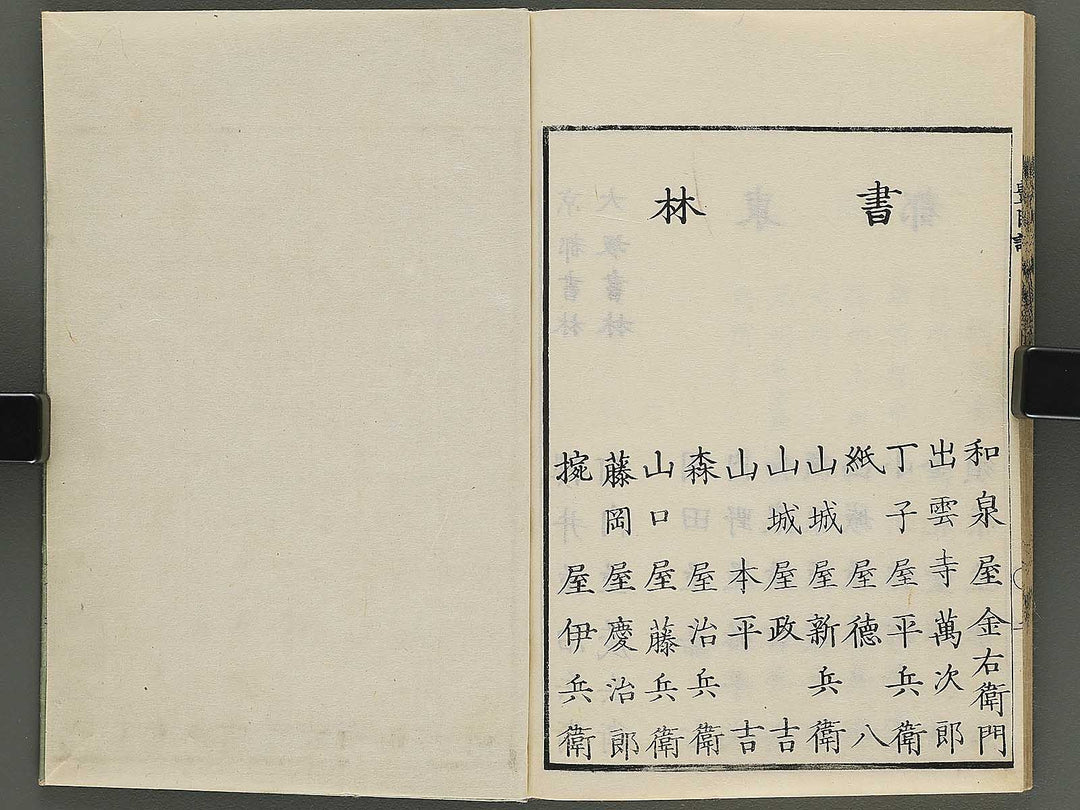 書林
和泉屋金右衛門
出雲寺萬次郎
丁子屋平兵衛
紙屋德八
山城屋新兵衛
山城屋政吉
山本平吉
森屋治兵衛
山口屋藤兵衛
藤岡屋慶治郎
捥屋伊兵衛